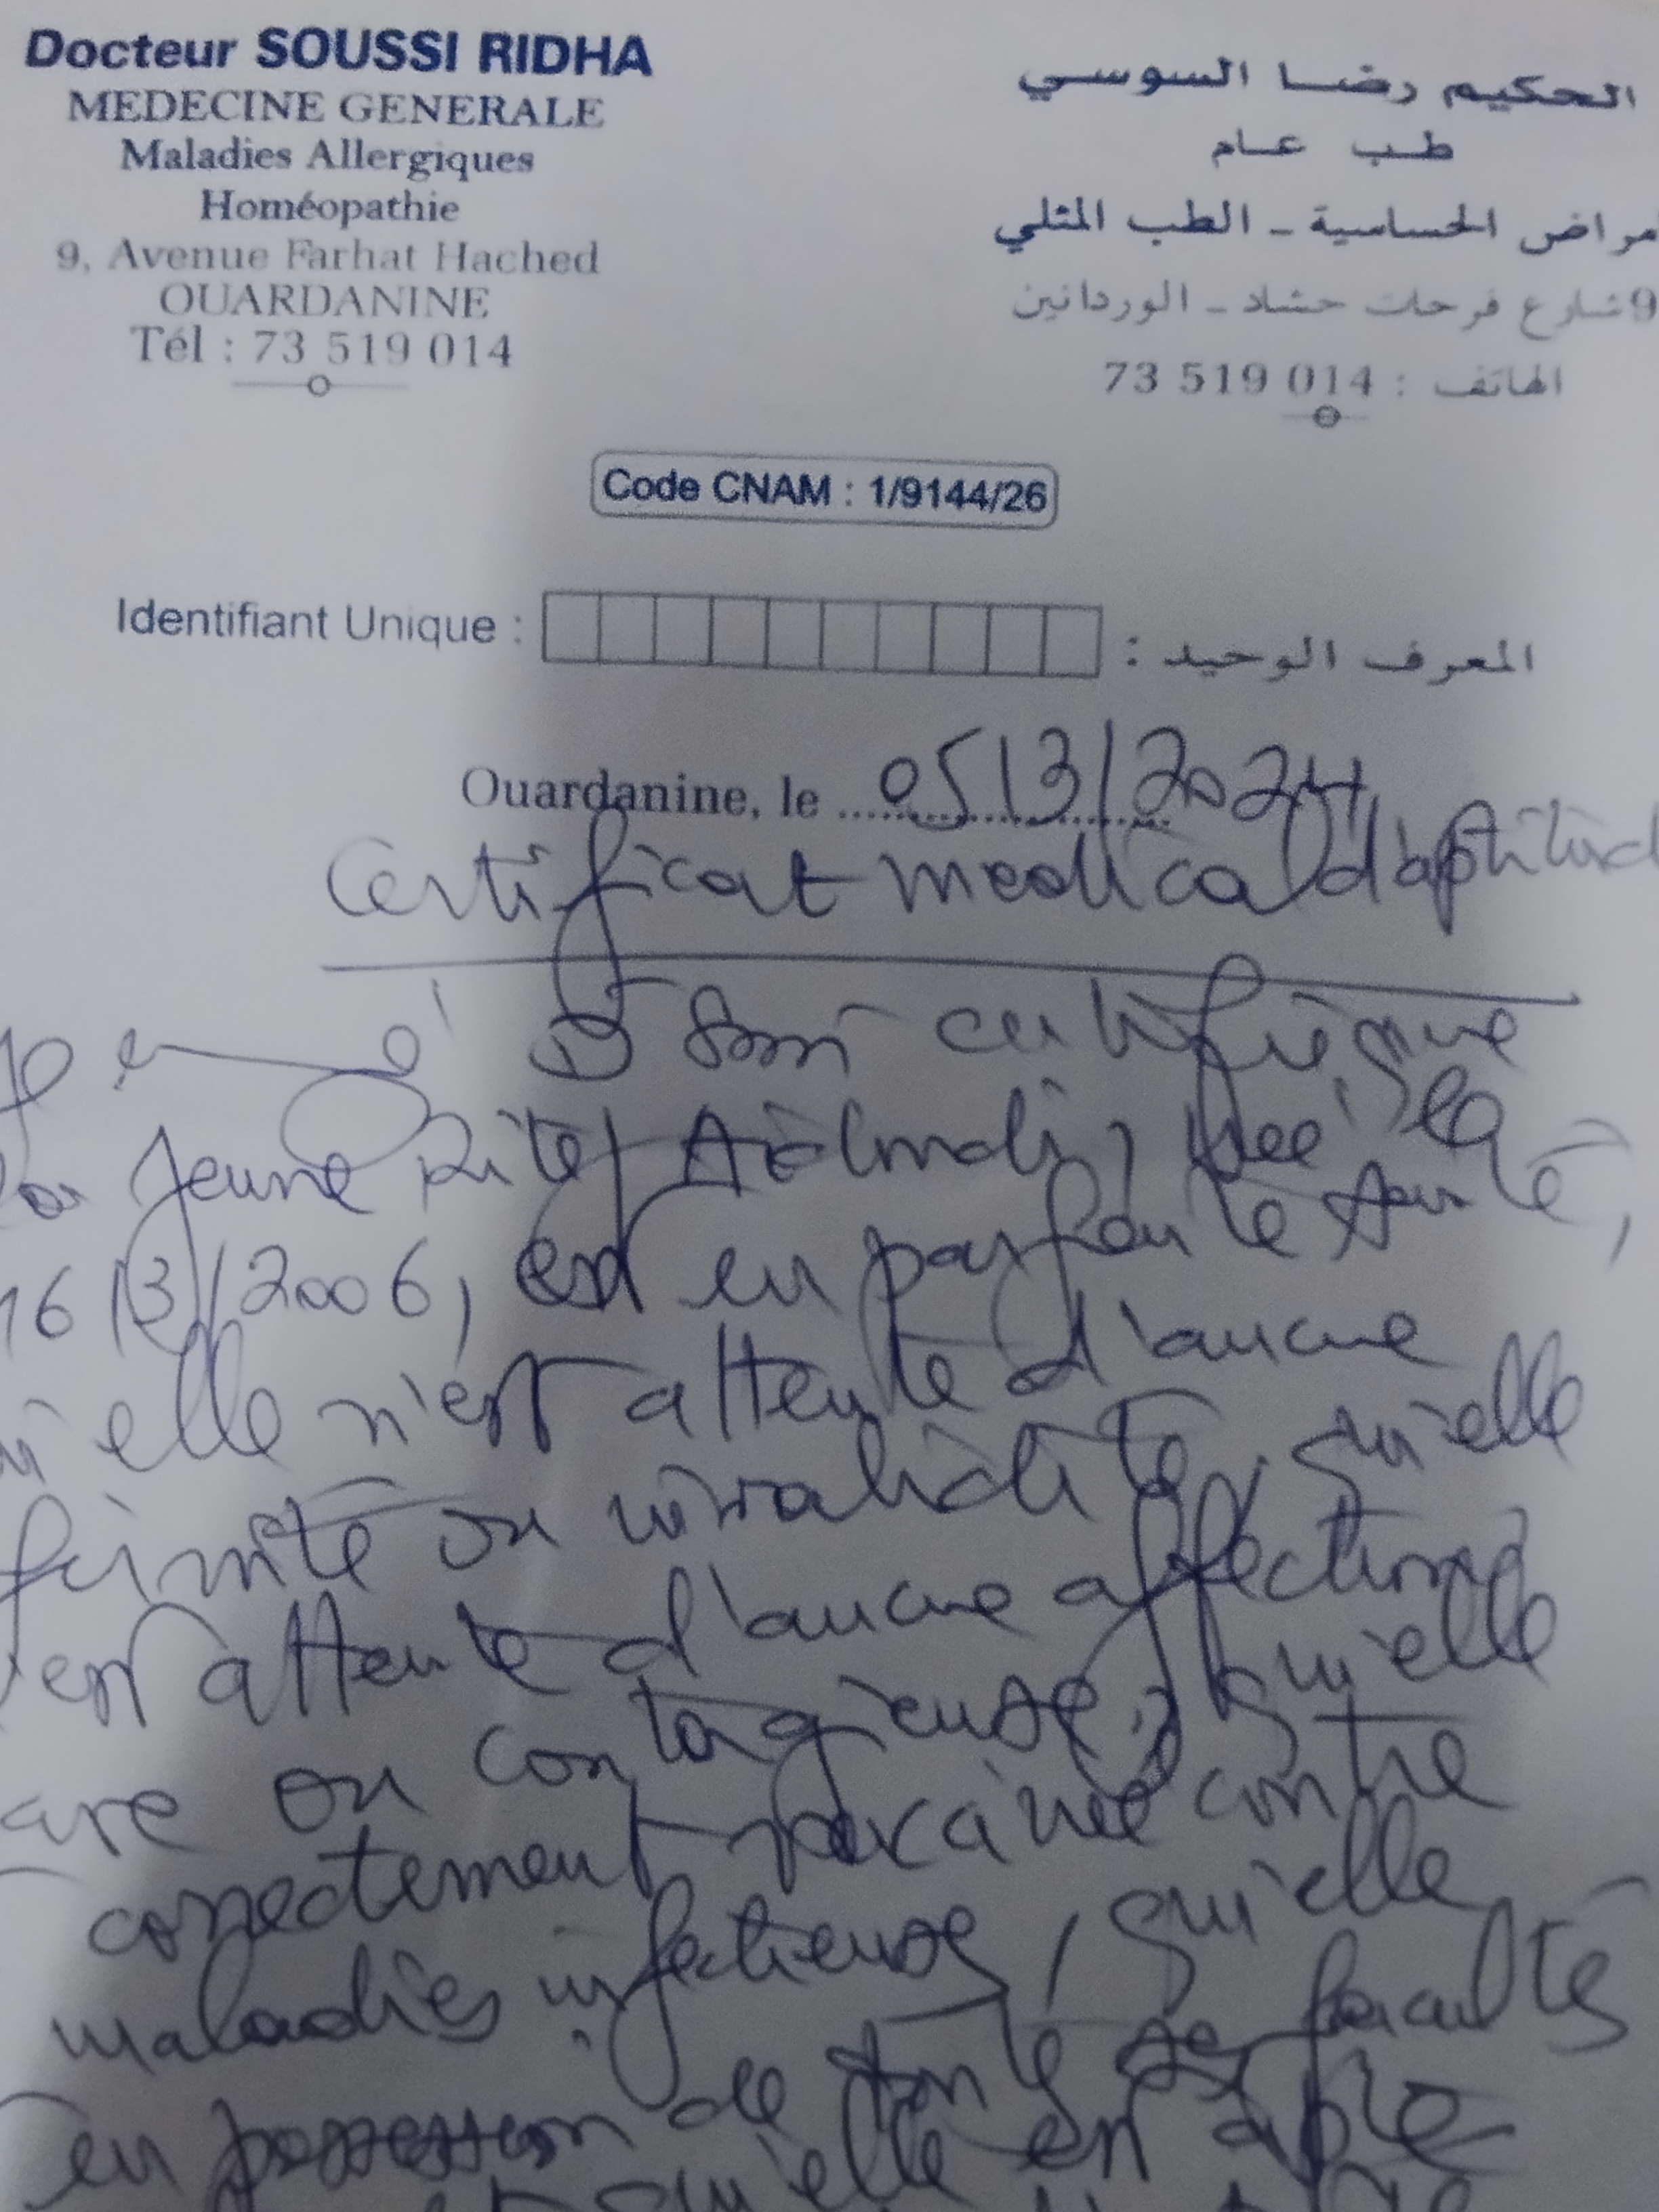 Docteur SOUSSI RIDHA
MEDECINE GENERALE
Maladies Allergiques
Homéopathie
9, Avenue Farhat Hached
OUARDANINE
Tél : 73 519 014
الحكيم رضا السوسي
طب عام
مراض الحساسية - الطب المثلي
9 شارع فرحات حشاد - الوردانين
الهاتف : 73 519 014
Code CNAM : 1/9144/26
Identifiant Unique :
المعرف الوحيد :
Ouardanine, le 05/3/2024
Certificat medical d'aptitud
certifie que
Jeune née le
16/3/2006, est en parfaite santé,
elle n'est atteinte d'aucune
firmité ou invalidité, qu'elle
est atteinte d'aucune affection
are ou contagieuse, qu'elle
correctement vaccinée contre
maladies infectieuses, qu'elle
en possession de toute ses facultés
qu'elle en apte